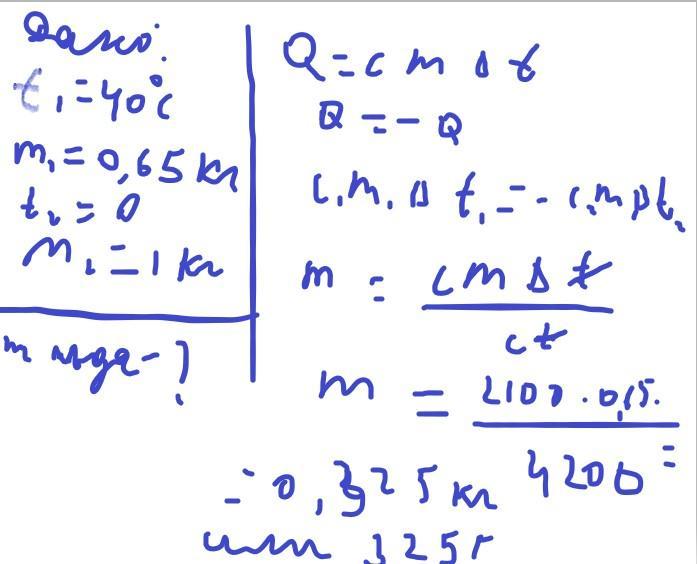 Дано:
t₁ = 40°c
m₁ = 0,65 кг
t₂ = 0
m₁ = 1 кг
m льда - ?
Q = c m Δ t
Q = - Q
c₁ m₁ Δ t₁ = - c₂ m Δ t₂
m = c m Δ t / c t
m = 2100 · 0,65 / 4200 =
= 0,325 кг
или 325 г